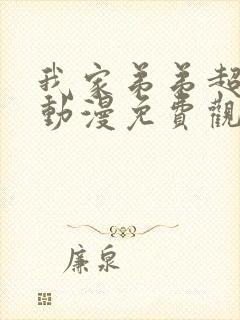 我家弟弟超
動漫免費觀
廉泉